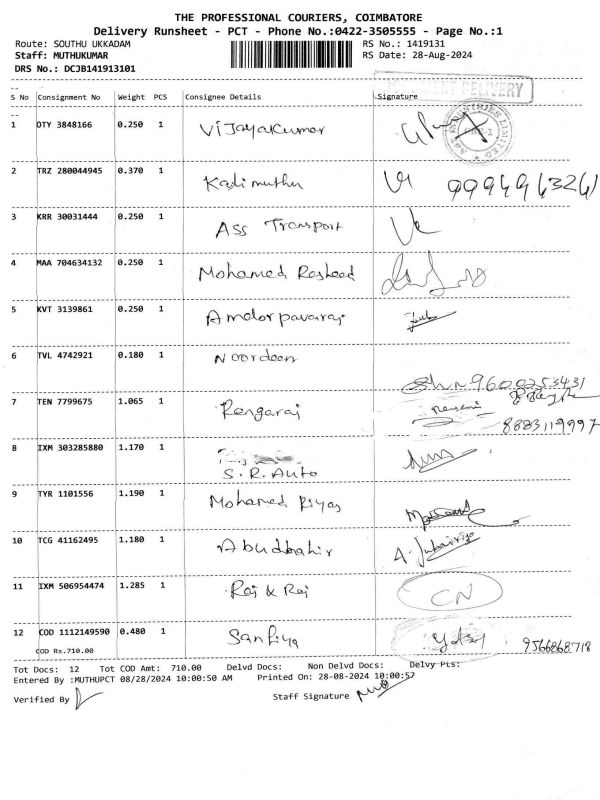 THE PROFESSIONAL COURIERS, COIMBATORE
Delivery Runsheet - PCT - Phone No.:0422-3505555 - Page No.:1
Route: SOUTHU UKKADAM RS No.: 1419131
Staff: MUTHUKUMAR RS Date: 28-Aug-2024
DRS No.: DCJB141913101
S No Consignment No Weight PCS Consignee Details Signature
1 OTY 3848166 0.250 1 Vijayakumar
2 TRZ 280044945 0.370 1 Kadimuthu
3 KRR 30031444 0.250 1 Ass Transport
4 MAA 704634132 0.250 1 Mohamed Rasheed
5 KVT 3139861 0.250 1 Amalorpavaraj
6 TVL 4742921 0.180 1 Noordeen
9600253431
7 TEN 7799675 1.065 1 Rengaraj
8883119997
8 IXM 303285880 1.170 1
S.R. Auto
9 TYR 1101556 1.190 1 Mohamed Riyas
10 TCG 41162495 1.180 1 Abudbahir
11 IXM 506954474 1.285 1 Raj & Raj CN
12 COD 1112149590 0.480 1 Sanfiya 9566868718
COD Rs.710.00
Tot Docs: 12 Tot COD Amt: 710.00 Delvd Docs: Non Delvd Docs: Delvy Pts:
Entered By :MUTHUPCT 08/28/2024 10:00:50 AM Printed On: 28-08-2024 10:00:57
Verified By Staff Signature